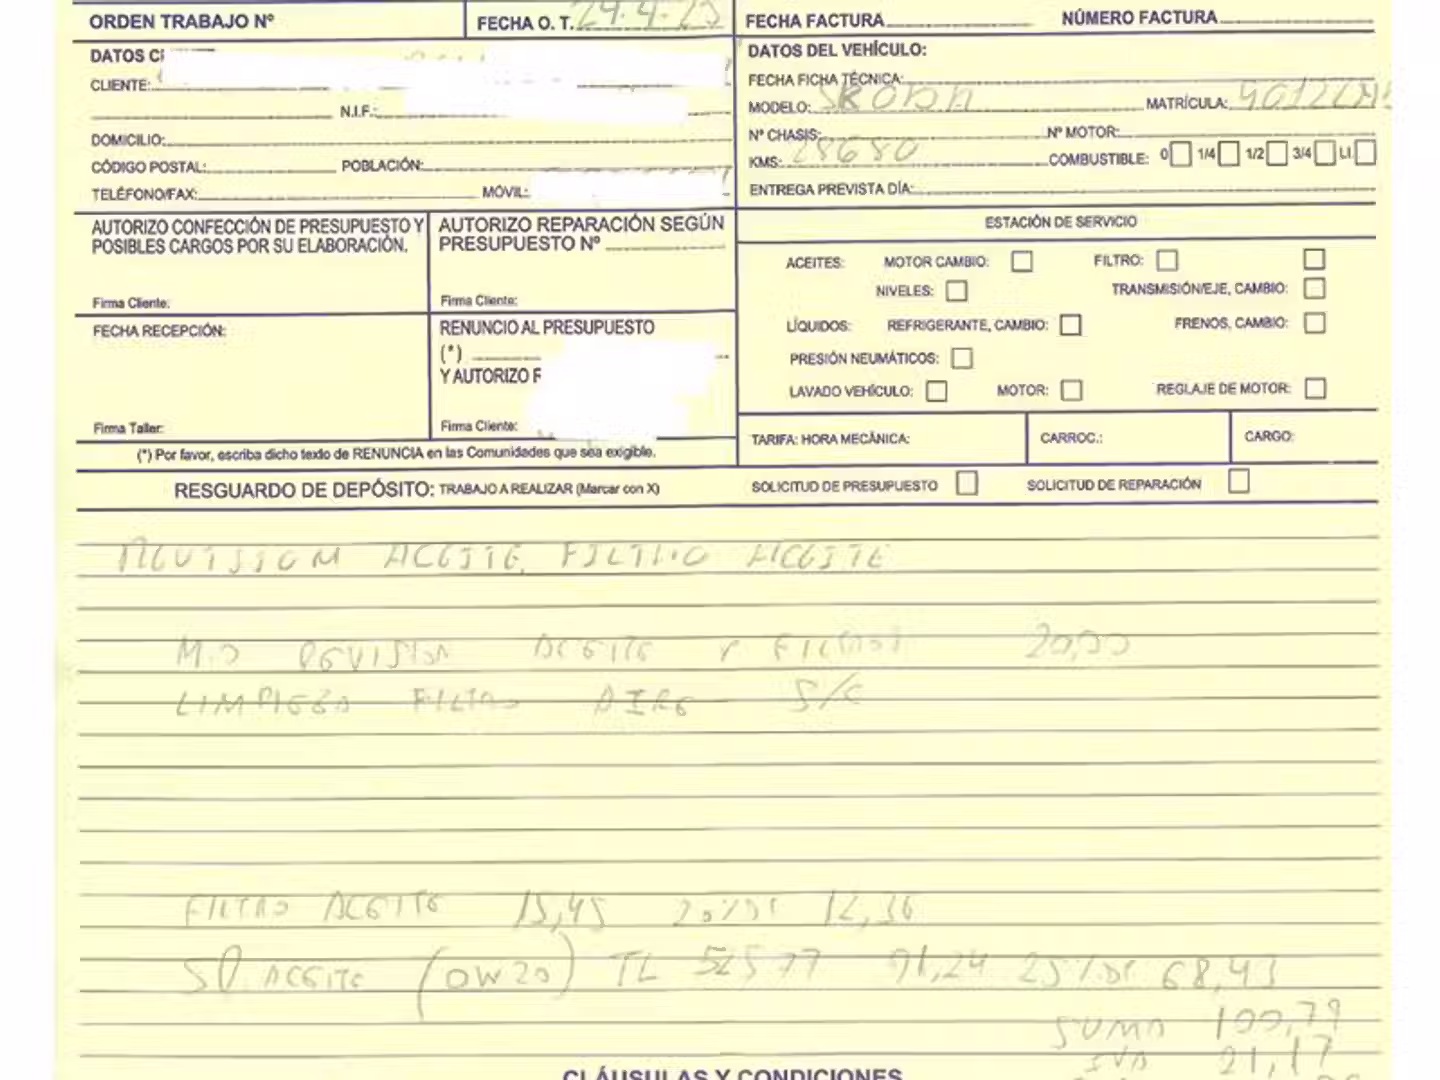 ORDEN TRABAJO Nº
FECHA O. T. 24.4.25
FECHA FACTURA
NÚMERO FACTURA
DATOS
CLIENTE:
N.I.F.:
DOMICILIO:
CÓDIGO POSTAL: POBLACIÓN:
TELÉFONO/FAX: MÓVIL:
DATOS DEL VEHÍCULO:
FECHA FICHA TÉCNICA:
MODELO: SKODA MATRÍCULA:
Nº CHASIS: Nº MOTOR:
KMS: 28680 COMBUSTIBLE: 0 1/4 1/2 3/4 LL
ENTREGA PREVISTA DÍA:
AUTORIZO CONFECCIÓN DE PRESUPUESTO Y
POSIBLES CARGOS POR SU ELABORACIÓN.
Firma Cliente:
AUTORIZO REPARACIÓN SEGÚN
PRESUPUESTO Nº
Firma Cliente:
FECHA RECEPCIÓN:
Firma Taller:
RENUNCIO AL PRESUPUESTO
(*)
Y AUTORIZO
Firma Cliente:
(*) Por favor, escriba dicho texto de RENUNCIA en las Comunidades que sea exigible.
ESTACIÓN DE SERVICIO
ACEITES: MOTOR CAMBIO: FILTRO:
NIVELES: TRANSMISIÓN/EJE, CAMBIO:
LÍQUIDOS: REFRIGERANTE, CAMBIO: FRENOS, CAMBIO:
PRESIÓN NEUMÁTICOS:
LAVADO VEHÍCULO: MOTOR: REGLAJE DE MOTOR:
TARIFA: HORA MECÁNICA: CARROC.: CARGO:
RESGUARDO DE DEPÓSITO: TRABAJO A REALIZAR (Marcar con X) SOLICITUD DE PRESUPUESTO SOLICITUD DE REPARACIÓN
REVISION ACEITE FILTRO ACEITE
M.O REVISION ACEITE Y FILTROS 20,00
LIMPIEZA FILTRO AIRE S/C
FILTRO ACEITE 15,45 20% DE 12,36
5L ACEITE (0W20) TL 52577 91,24 25% DE 68,43
SUMA 100,79
IVA 21,17
CLÁUSULAS Y CONDICIONES